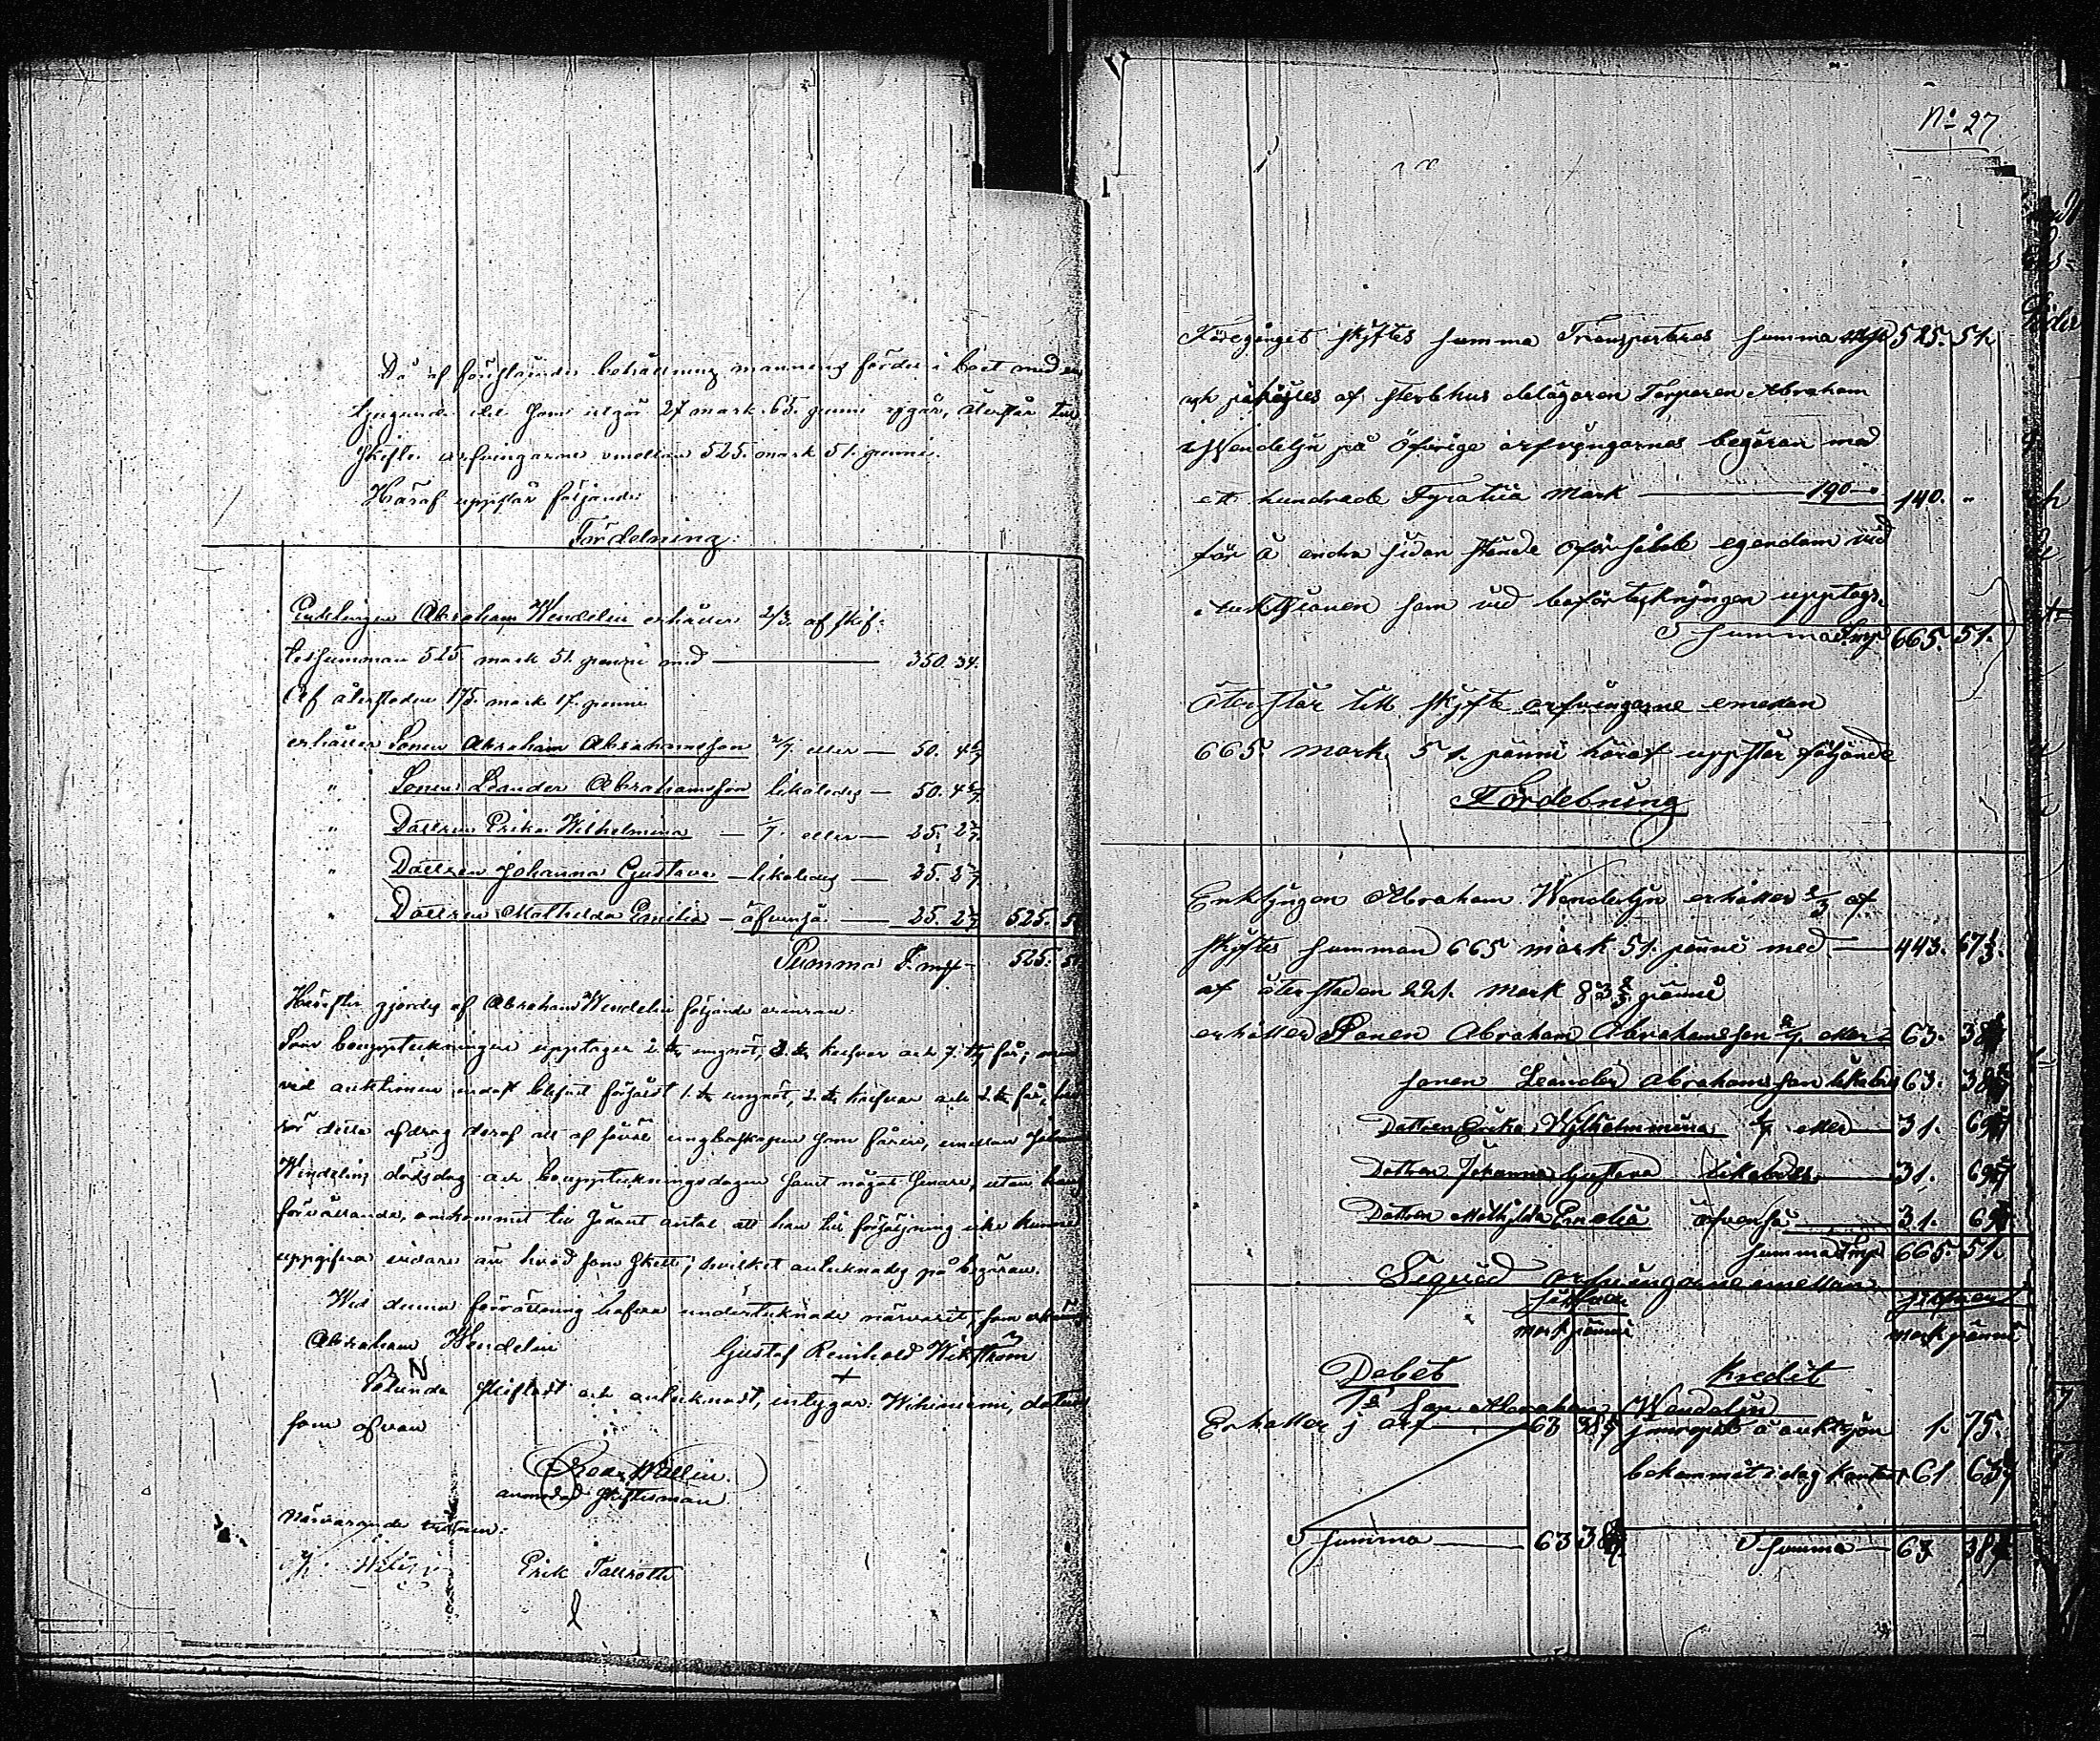 Då af förestående behållning mannens fördel i boet med en
tjugundedel som utgör 27 mark 65 penni afgår, återstår till
skifte arfvingarne emellan 525 mark 51 penni.
Häraf uppstår följande
Fördelning:
Enklingen Abraham Wendelin erhåller 2/3 af skif-
tessumman 525 mark 51 penni med 350. 34.
Af återstoden 175 mark 17 penni
erhåller Sonen Abraham Abrahamsson 2/7 eller 50. 4 6/7
" Sonen Leander Abrahamsson likaledes 50. 4 6/7
" Dottren Erika Wilhelmina 1/7 eller 25. 2 3/7
" Dottren Johanna Gustava likaledes 25. 2 3/7
" Dottren Mathilda Emilia äfvenså 25. 2 3/7 525. 51
Summa F.mk 525. 51
Härefter gjordes af Abraham Wendelin följande erinran:
Som bouppteckningen upptager 2 st. ungnöt, 3 st. kalfvar och 7 st. får, men
vid auktionen endast blifvit försåldt 1 st. ungnöt, 2 st. kalfvar och 2 st. får,
rör detta afdrag deraf att af såväl ungboskapen som fåren, emellan
Wendelins dödsdag och bouppteckningsdagen samt något senare, utan hans
förvållande, omkommit till sådant antal att han till försäljning icke kunnat
uppgifva vidare än hvad som skett; hvilket antecknades på begäran.
Wid denna förrättning hafva undertecknade närvarit, som erkännes
Abraham Wendelin Gustaf Reinhold Wikström
N +
Sålunda skiftadt och antecknadt, intygar: Wihiniemi, datum
som ofvan
Oscar Wallin.
anmodad skiftesman
Närvarande vittnen:
Erik Tallroth
No 27
Föregånget skyftes summa Transporteras summa mk 525. 51.
och påhöjtes af sterbhus delägaren Torparen Abraham
Wendelijn på öfvrige arfvyngarnes begäran med
ett hundrade Fyratia mark 140 - " 140. "
för å andra sidan stände oförsålde egendom vid
auktsionen som vid boförtekningen upptogs.
Summa Fmk 665. 51.
återstår till skyfte arfvingarne emellan
665 mark 51 pänni häraf uppstår föliande
Fördebning
Enklyngen Abraham Wendelijn erhåller 2/3 af
skyftes summan 665 mark 51 pänni med 443. 67 1/3.
af återstoden 221. mark 83 2/3 pänni
erhåller Sonen Abraham Abrahamsson 2/7 eller 63. 38
sonen Leander Abrahamsson likaledes 63. 38
Dottren Erika Wilhelmina 1/7 eller 31. 69
Dottren Johanna Gustava likaledes 31. 69
Dottren Mathilda Emelia äfvenså 31. 69
summa Fmk 665. 51.
arfvingarne emellan
mark pänni mark pänni
Debet Kredit
Wendelin
Erhåller j arf 63 38 jnropat å auktsjon 1. 75.
bekommit i dag kontant 61 63
Summa 63 38 Summa 63 38